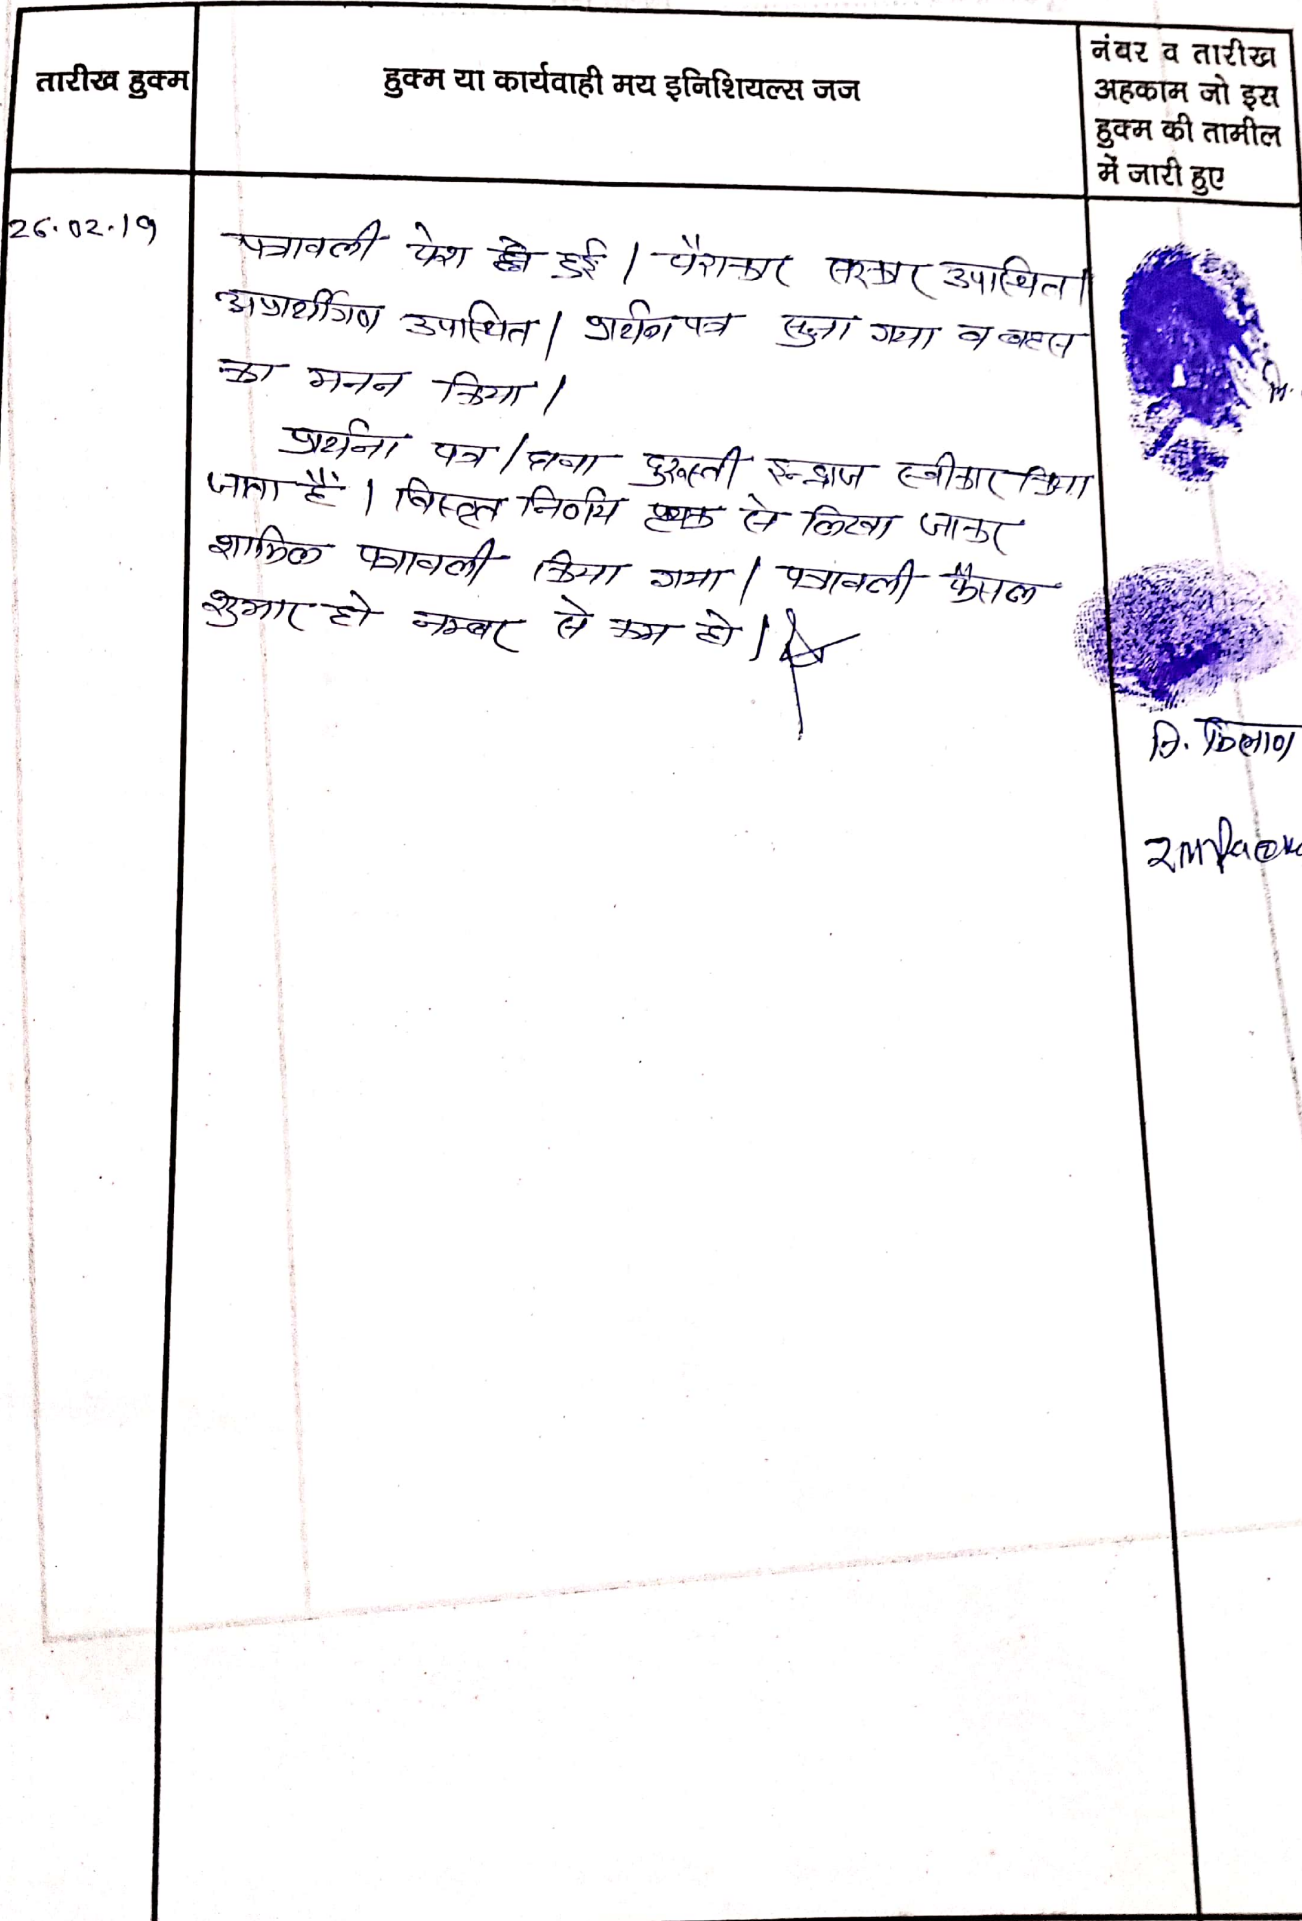 तारीख हुक्म
हुक्म या कार्यवाही मय इनिशियल्स जज
नंबर व तारीख
अहकाम जो इस
हुक्म की तामील
में जारी हुए
26.02.19
पत्रावली पेश हुई। पैराकार सरकार उपास्थित।
अप्रार्थीगण उपास्थित। प्रार्थना पत्र सुना गया व बहस
का मनन किया।
प्रार्थना पत्र/दावा दुरुस्ती इन्द्राज स्वीकार किया
जाता हैं। विस्तृत निर्णय पृथक से लिखा जाकर
शामिल पत्रावली किया गया। पत्रावली फैसल
शुमार हो नम्बर से कम हो।
नि.